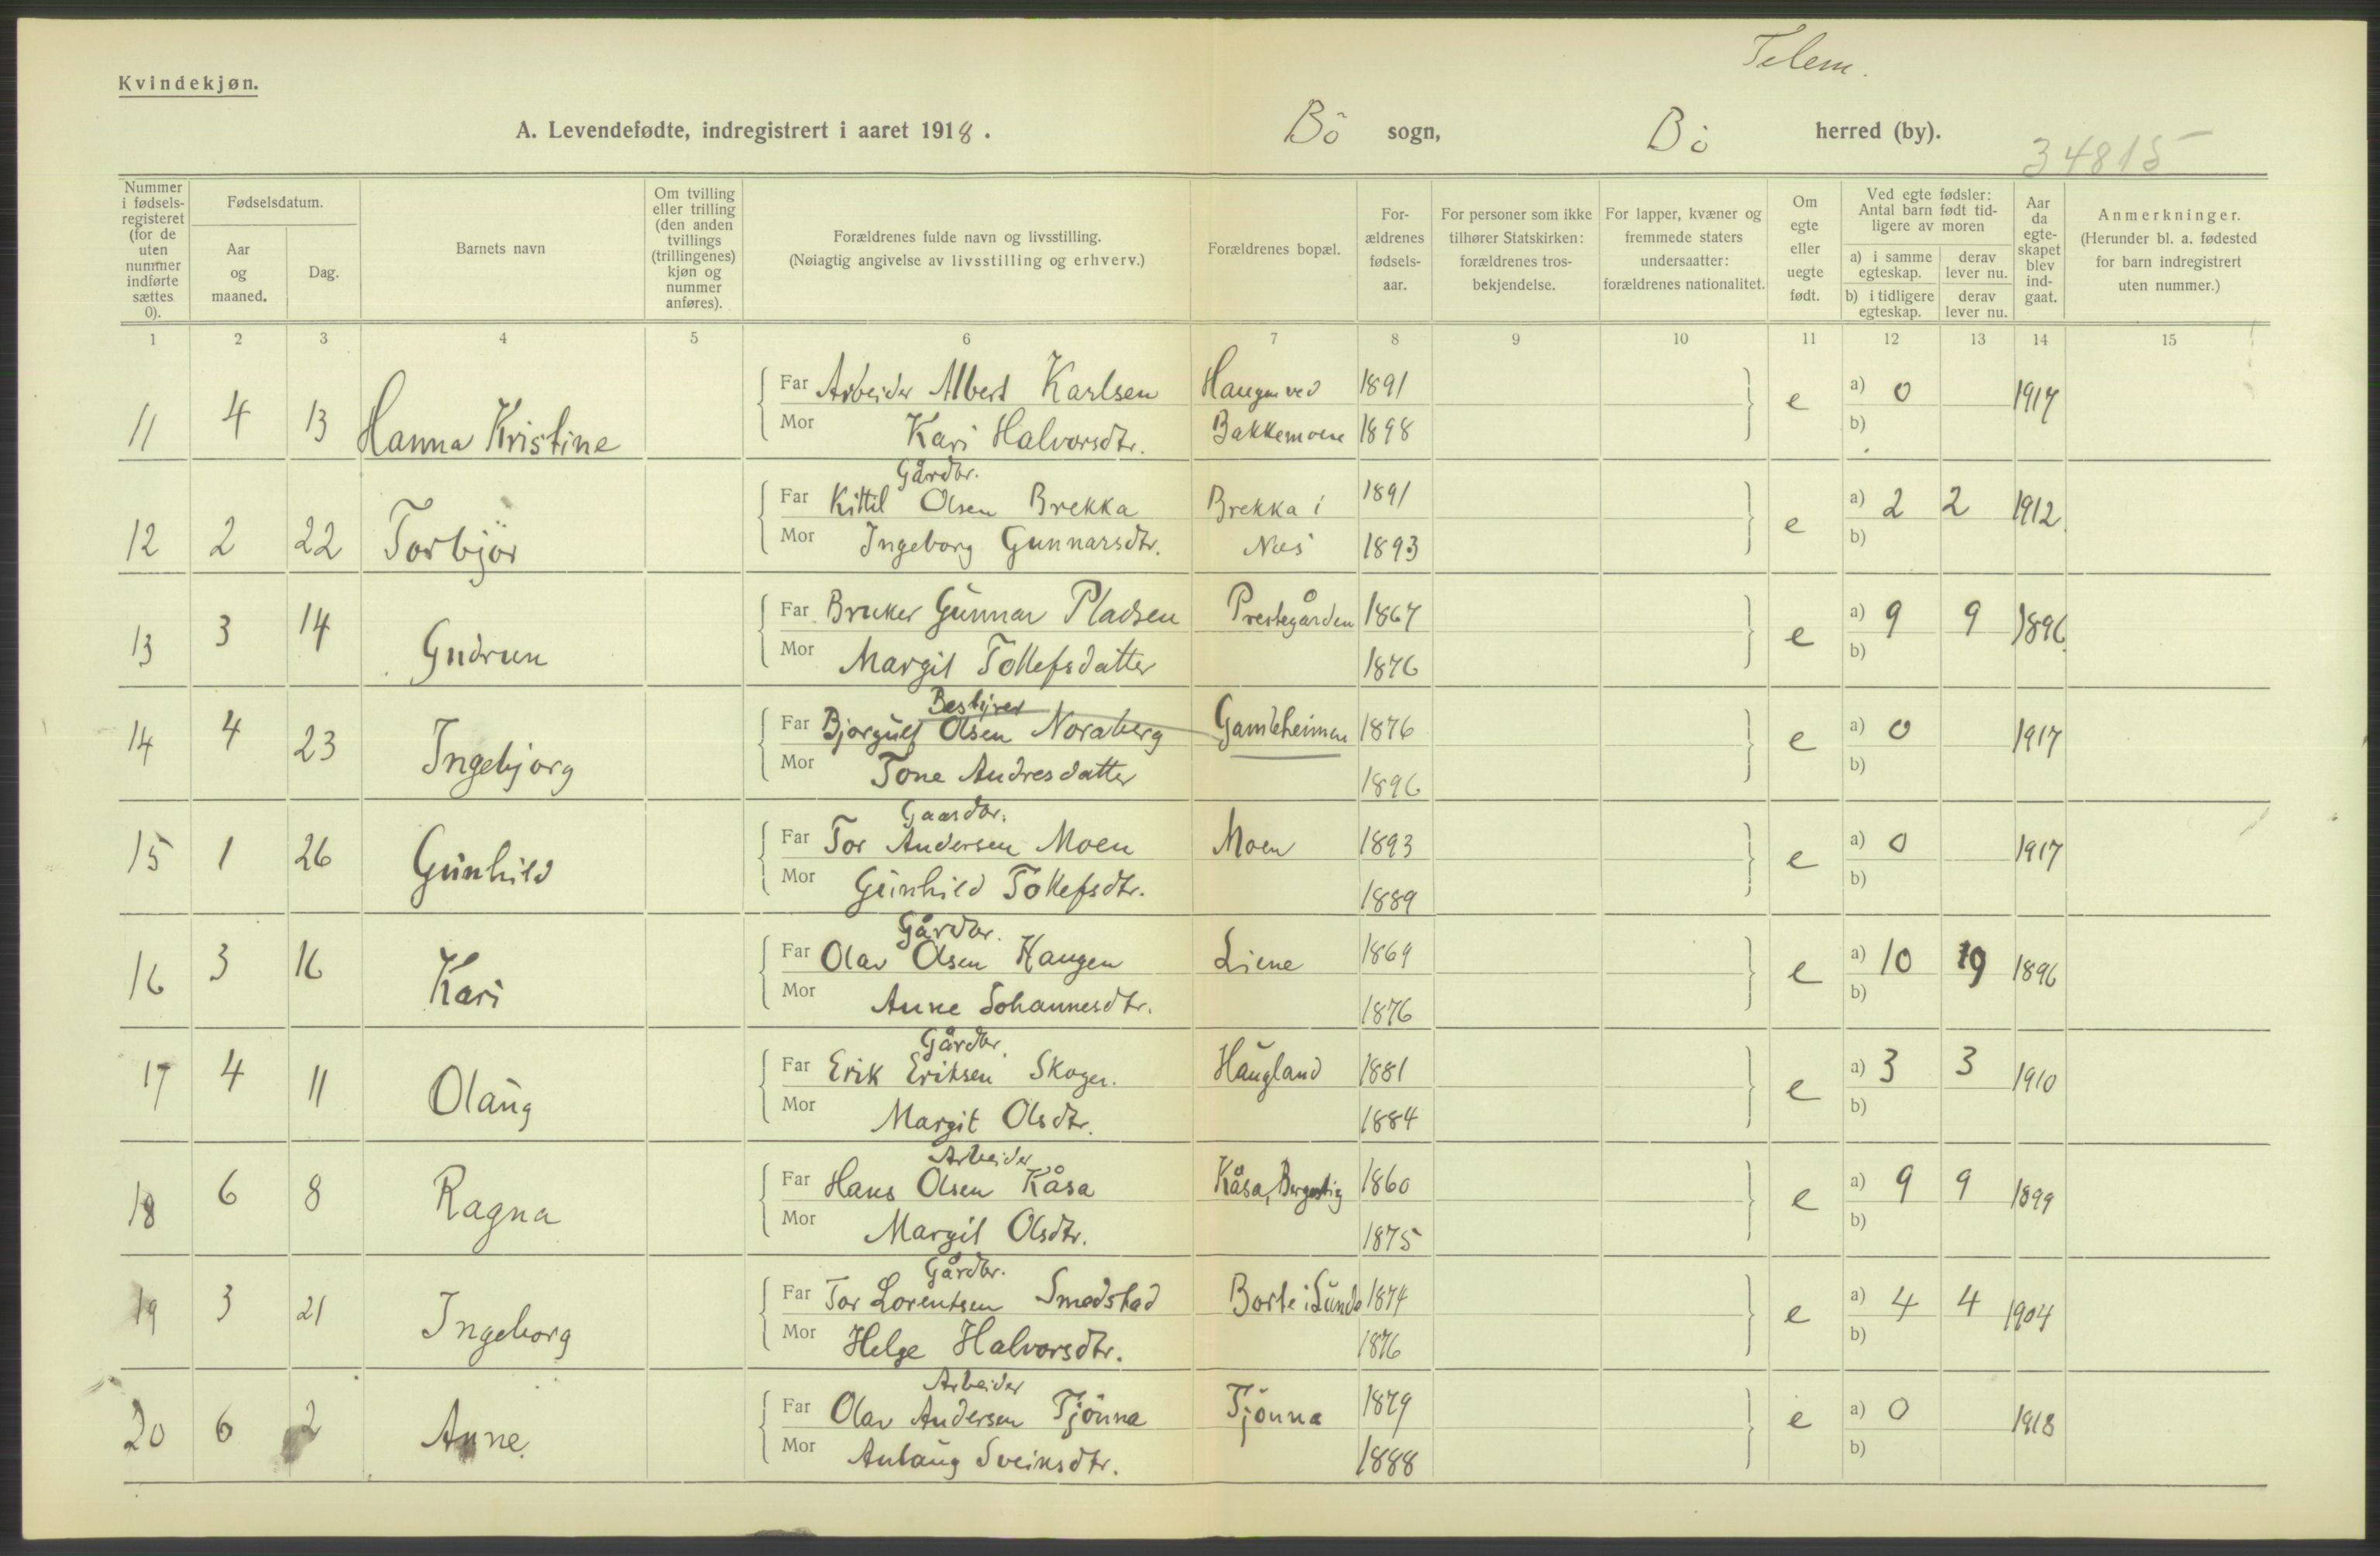 Telem.
Kvindekjøn.
A. Levendefødte, indregistrert i aaret 1918. Bö sogn, Bö herred (by).
34815
Nummer i fødsels-registeret (for de uten nummer indførte sættes 0). Fødselsdatum. Aar og maaned. Dag. Barnets navn Om tvilling eller trilling (den anden tvillings (trillingenes) kjøn og nummer anføres). Forældrenes fulde navn og livsstilling. (Nøiagtig angivelse av livsstilling og erhverv.) Forældrenes bopæl. For-ældrenes fødsels-aar. For personer som ikke tilhører Statskirken: forældrenes tros-bekjendelse. For lapper, kvæner og fremmede staters undersaatter: forældrenes nationalitet. Om egte eller uegte født. Ved egte fødsler: Antal barn født tid-ligere av moren a) i samme egteskap. derav lever nu. b) i tidligere egteskap. derav lever nu. Aar da egte-skapet blev ind-gaat. Anmerkninger. (Herunder bl. a. fødested for barn indregistrert uten nummer.)
1 2 3 4 5 6 7 8 9 10 11 12 13 14 15
11 4 13 Hanna Kristine Far Arbeider Albert Karlsen Haugen ved 1891 e a) 0 1917
Mor Kari Halvorsdtr. Bakkemoene 1898 b)
Gårdbr.
12 2 22 Torbjör Far Kittil Olsen Brekka Brekka i 1891 e a) 2 2 1912
Mor Ingeborg Gunnarsdtr. Næs 1893 b)
13 3 14 Gudrun Far Bruker Gunnar Pladsen Prestegården 1867 e a) 9 9 1896
Mor Margit Tollefsdatter 1876 b)
Bestyrer
14 4 23 Ingebjorg Far Bjorgulf Olsen Noraberg Gamleheimen 1876 e a) 0 1917
Mor Tone Andresdatter 1896 b)
Gaardbr.
15 1 26 Gunhild Far Tor Andersen Moen Moen 1893 e a) 0 1917
Mor Gunhild Tollefsdtr. 1889 b)
Gårdbr.
16 3 16 Kari Far Olav Olsen Haugen Liene 1869 e a) 10 9 1896
Mor Anne Johannesdtr. 1876 b)
Gårdbr.
17 4 11 Olaug Far Erik Eriksen Skogen. Haugland 1881 e a) 3 3 1910
Mor Margit Olsdtr. 1884 b)
Arbeider
18 6 8 Ragna Far Hans Olsen Kåsa Kåsa, 1860 e a) 9 9 1899
Mor Margit Olsdtr. 1875 b)
Gårdbr.
19 3 21 Ingeborg Far Tor Lorentsen Smedstad Borte i Sunde 1874 e a) 4 4 1904
Mor Helge Halvorsdtr. 1876 b)
Arbeider
20 6 2 Anne. Far Olav Andersen Tjönna Tjönna 1879 e a) 0 1918
Mor Anlaug Sveinsdtr. 1888 b)